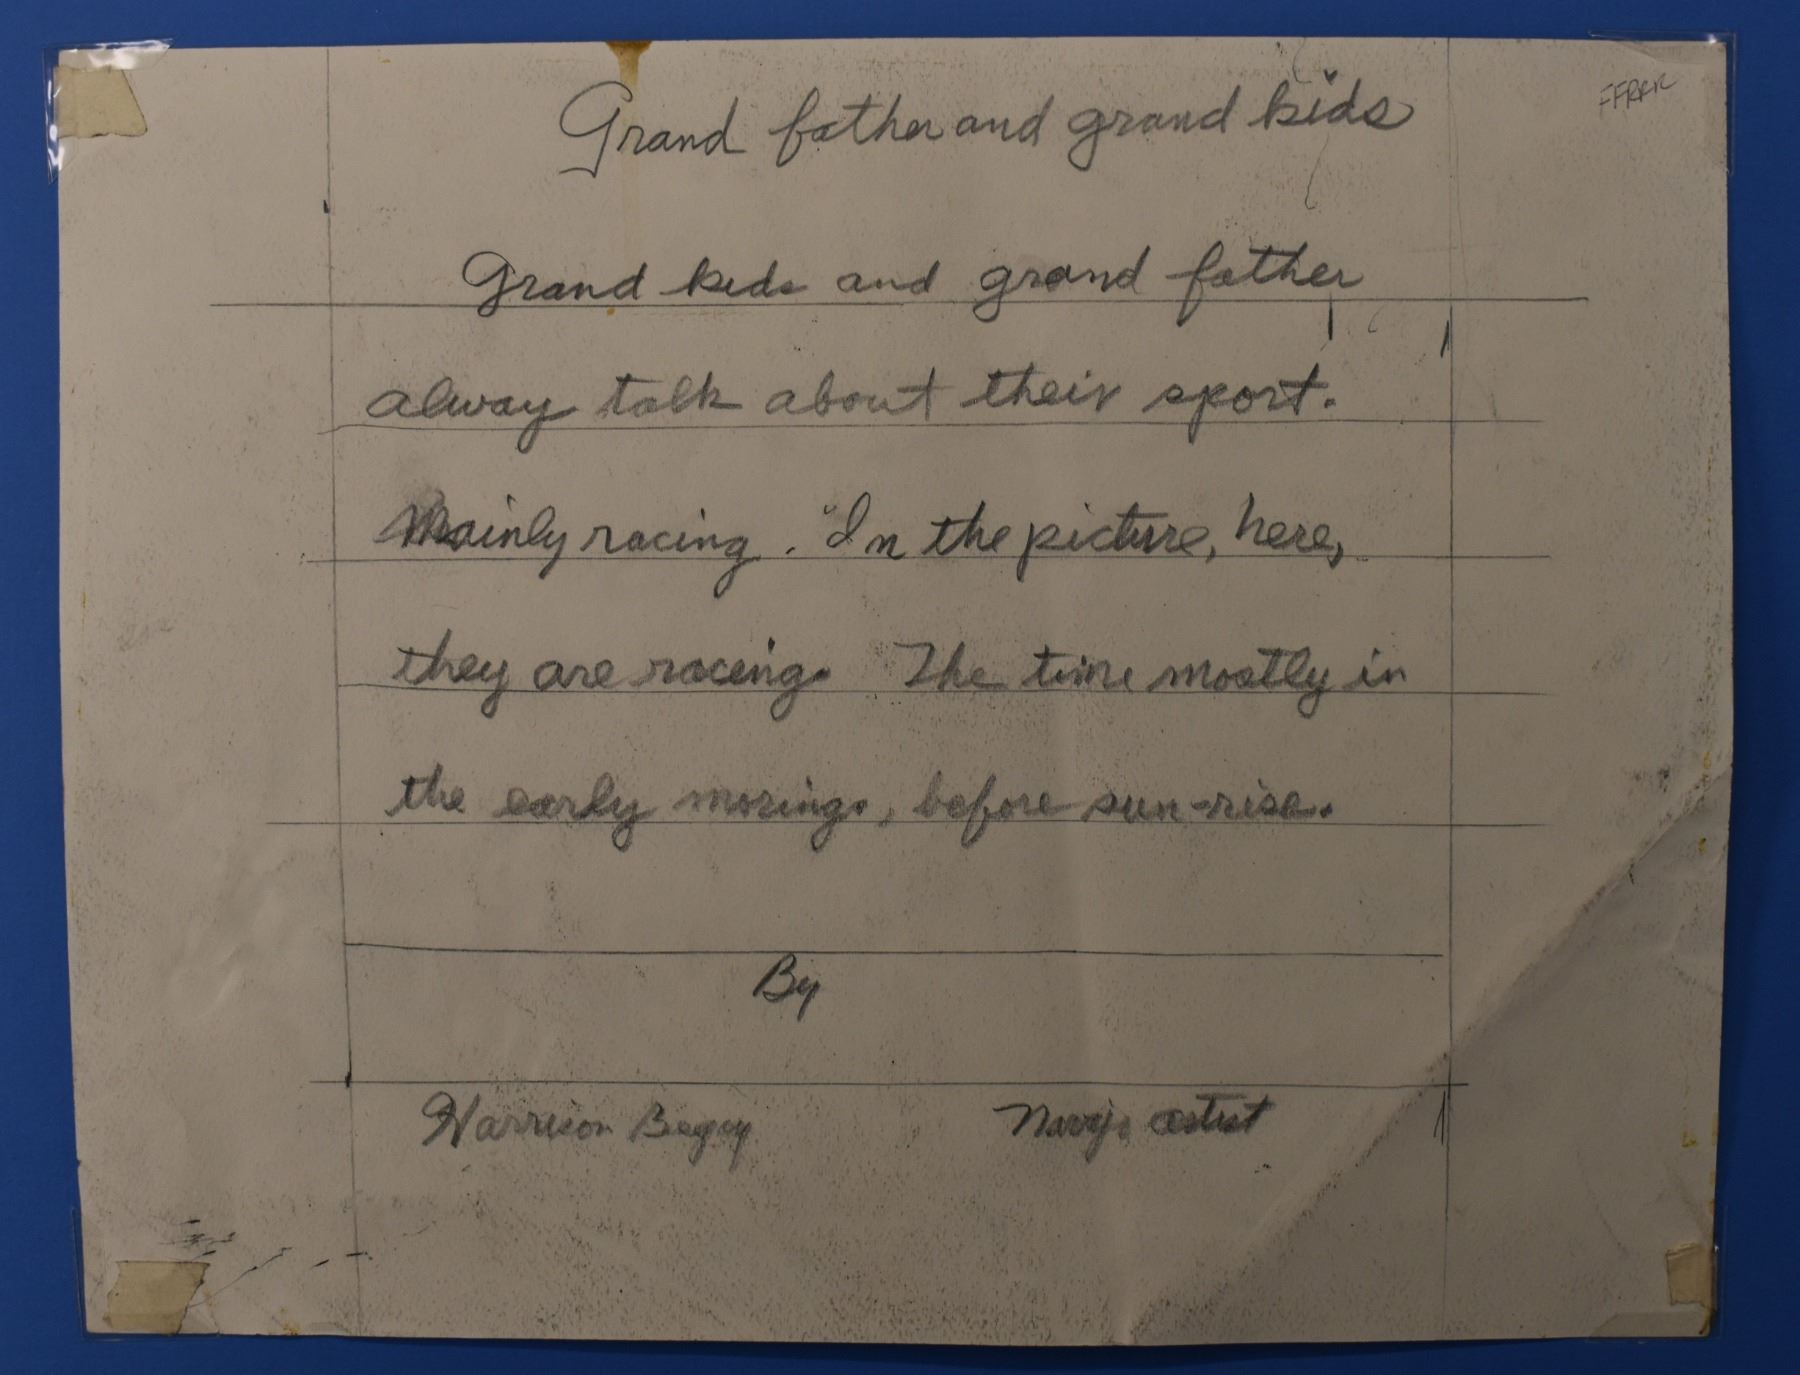 Grand father and grand kids
Grand kids and grand father
alway talk about their sport.
Mainly racing. In the picture, here,
they are racing. The time mostly in
the early moring, before sun-rise.
By
Harrison Begay Navajo artist